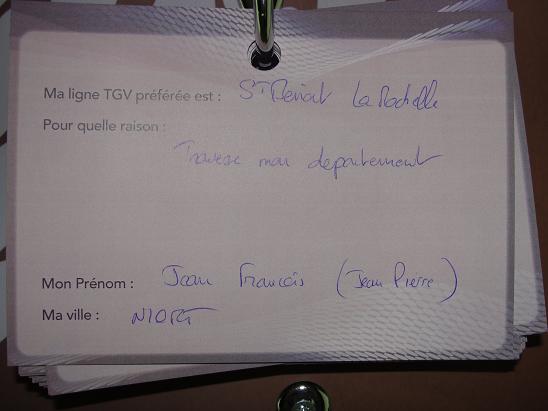 Ma ligne TGV préférée est : St Benoit La Rochelle
Pour quelle raison :
Traverse mon departement
Mon Prénom : Jean François (Jean Pierre)
Ma ville : NIORT